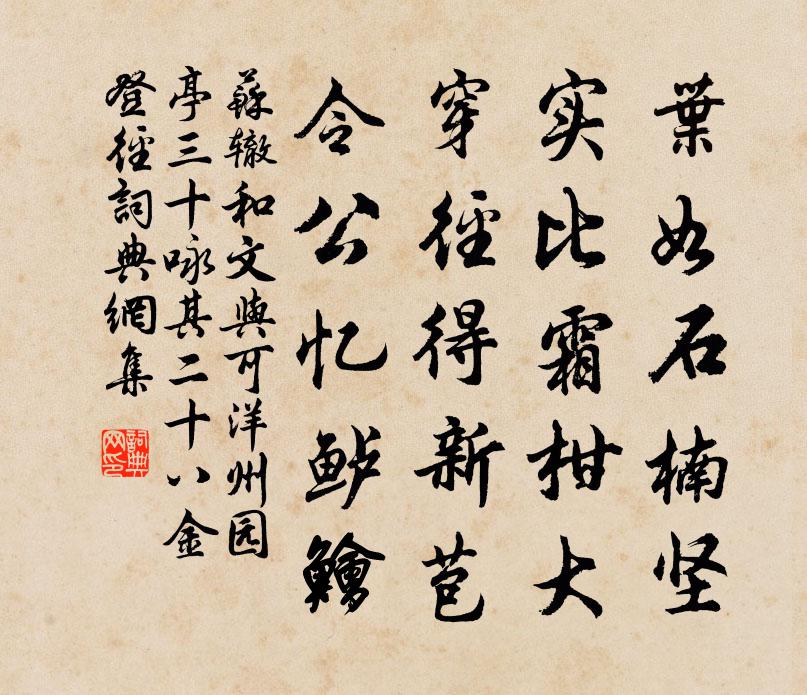 葉如石楠坚
实比霜柑大
穿径得新苞
令公忆鲈鱠
蘇辙和文與可洋州园
亭三十咏其二十八金
登径詞典網集
詞典网印